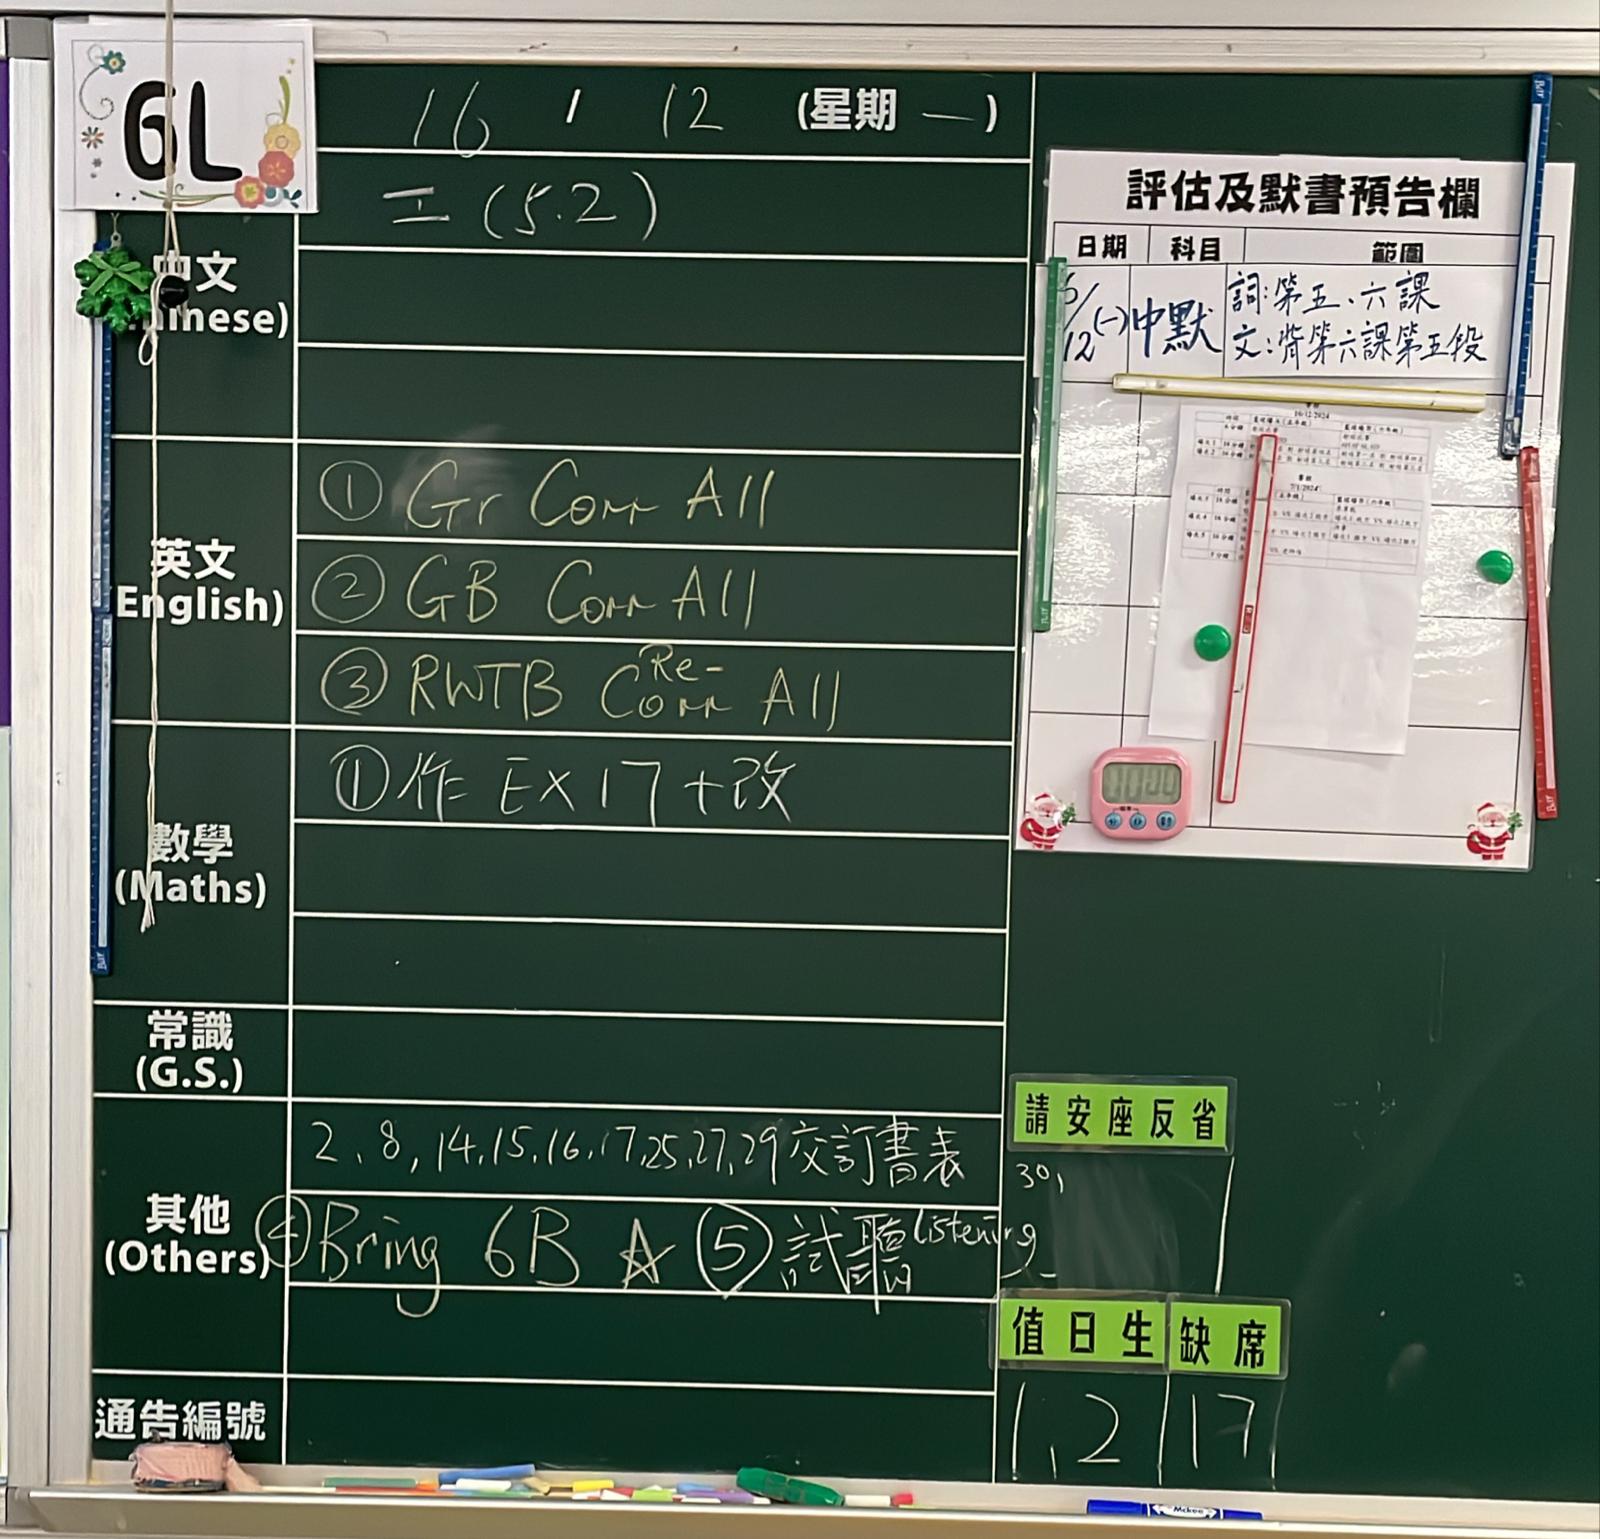 6L
16 / 12 (星期一)
工 (5.2)
中文
(Chinese)
英文
(English)
① Gr Corr All
② GB Corr All
③ RWTB Re-Corr All
數學
(Maths)
① 作 EX 17 + 改
常識
(G.S.)
其他
(Others)
2、8, 14, 15, 16, 17, 25, 27, 29 交訂書表
④ Bring 6B ☆ ⑤ 試聽 listening
通告編號
評估及默書預告欄
日期 科目 範圍
12 (一) 中默 詞:第五、六課
文:背第六課第五段
16/12/2024
7/1/2024
請安座反省
30,
值日生 缺席
1, 2 17